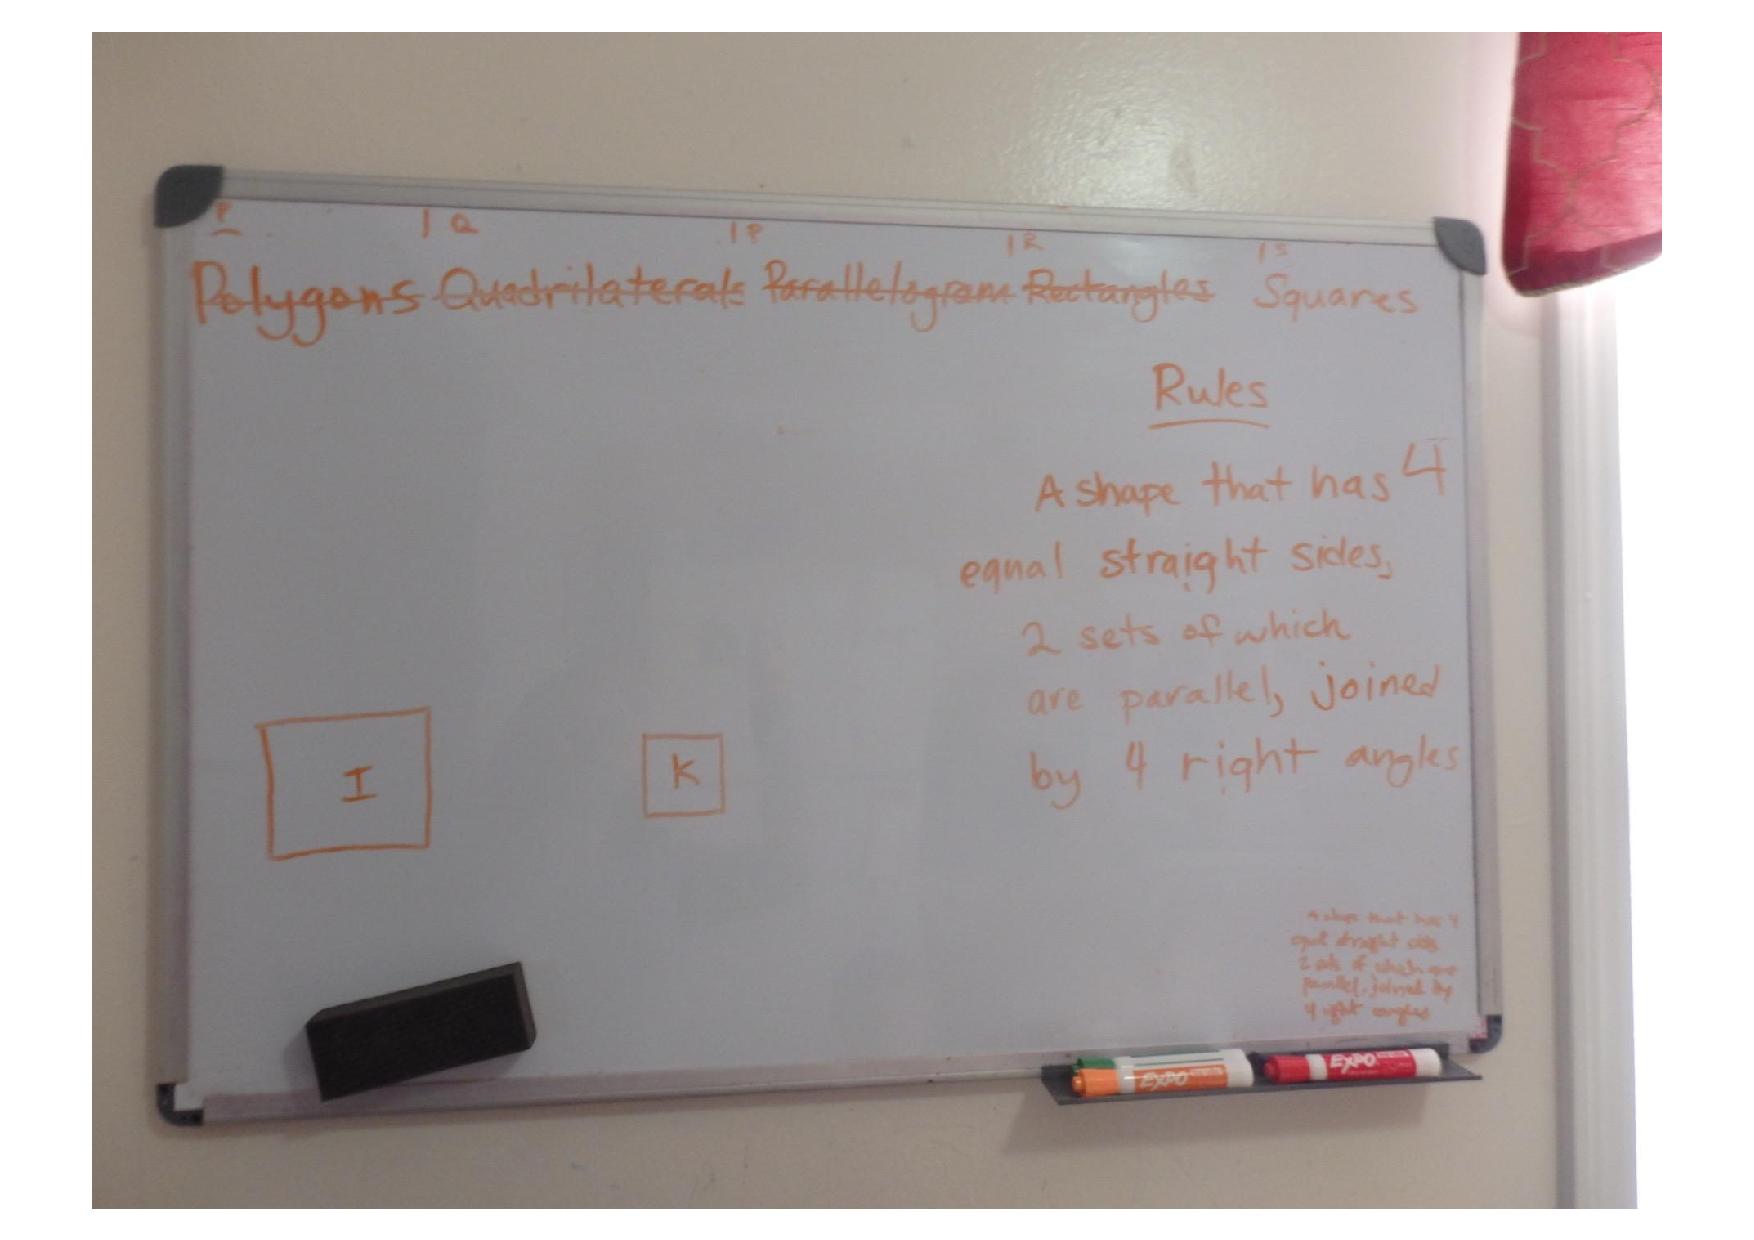 P | Q | P | R | S
Polygons Quadrilaterals Parallelogram Rectangles Squares
Rules
A shape that has 4
equal straight sides,
2 sets of which
are parallel, joined
by 4 right angles
I K
A shape that has 4
equal straight sides
2 sets of which are
parallel, joined by
4 right angles
EXPO EXPO